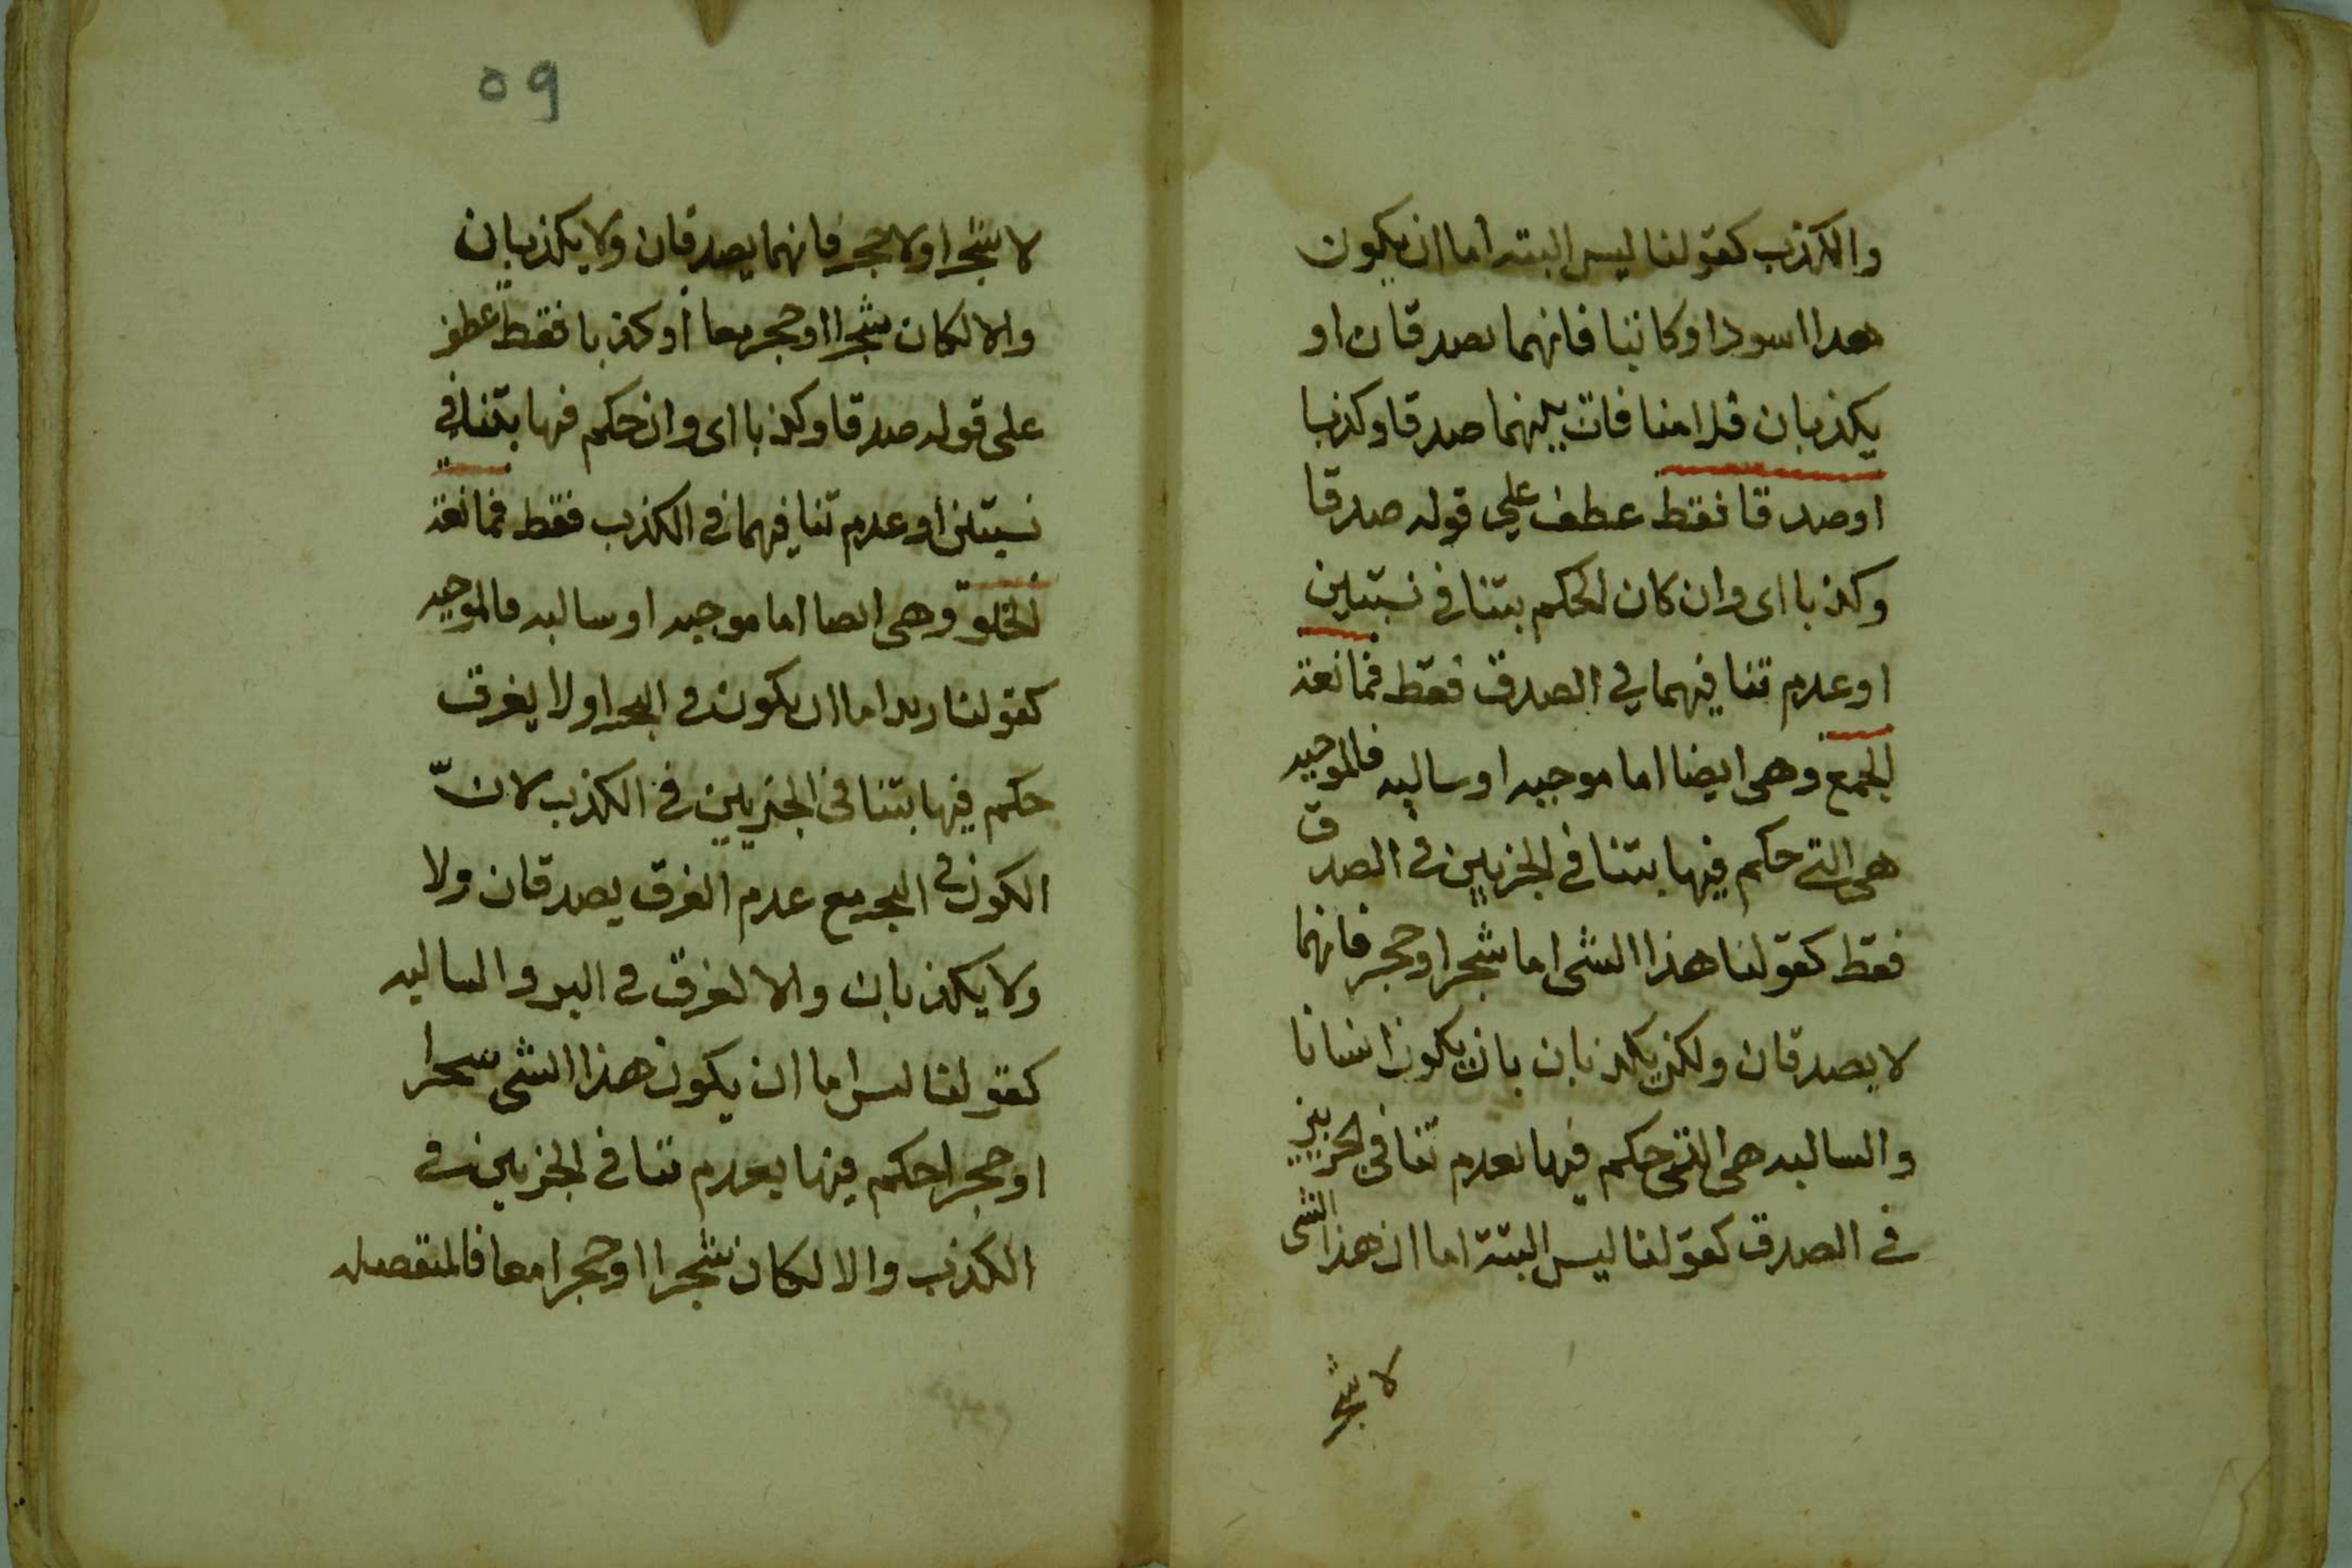 والكذب كقولنا ليس البته اما ان يكون
هذا اسودا وكاتبا فانهما يصدقان او
يكذبان فلا منافات بينهما صدقا وكذبا
او صدقا فقط عطف على قوله صدقا
وكذبا اى وان كان الحكم بتنافى نسبتين
او عدم تنافيهما في الصدق فقط فمانعة
الجمع وهى ايضا اما موجبه او سالبه فالموجبه
هى التى حكم فيها بتنافى الجزيين فى الصدق
فقط كقولنا هذا الشى اما شجرا وحجر فانهما
لا يصدقان ولكن يكذبان بان يكون انسانا
والسالبه هى التى حكم فيها بعدم تنافي الجزيين
فى الصدق كقولنا ليس البتة اما ان هذا الشى
لا شجر
٥٩
لا شجرا ولا حجر فانهما يصدقان ولا يكذبان
والا لكان شجرا او حجر معا او كذبا فقط عطف
على قوله صدقا وكذبا اى وان حكم فيها بتنافي
نسبتين او عدم تنافيهما فى الكذب فقط فمانعة
الخلو وهى ايضا اما موجبه او سالبه فالموجبه
كقولنا زيد اما ان يكون فى البحر او لا يغرق
حكم فيها بتنافى الجزيين فى الكذب لانّ
الكون فى البحر مع عدم الغرق يصدقان ولا
ولا يكذبان والا لغرق فى البر والسالبه
كقولنا ليس اما ان يكون هذا الشى شجرا
او حجرا حكم فيها بعدم تنافى الجزيين فى
الكذب والا لكان شجرا او حجرا معا فالمنفصله